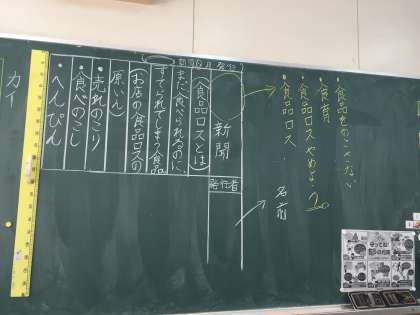 ・食品をのこさない
・食育
・食品ロスやめよう
・食品ロス
名前
新聞
発行者
(食品ロスとは)
まだ食べられるのに、
すてられてしまう食品
(お店の食品ロスの
原いん)
・売れのこり
・食べのこし
・へんぴん
カイ